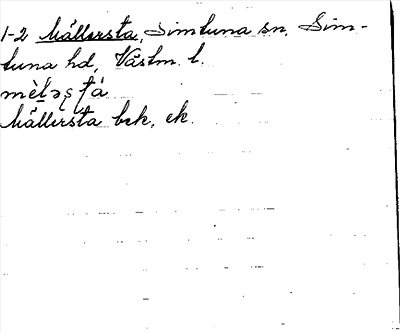 1-2 Mällersta, Simtuna sn, Sim-
tuna hd, Västm. l.
mèḷəʂʈá
Mällersta bek. ek.